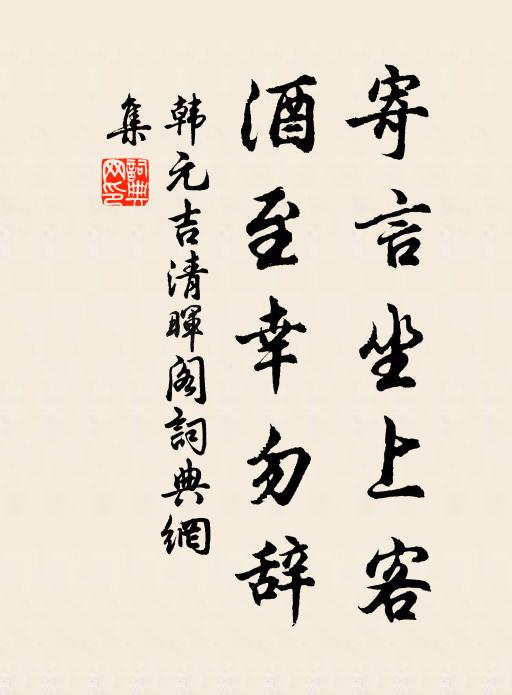 寄言坐上客
酒至幸勿辞
韩元吉清暉阁詞典網
集
詞典網印